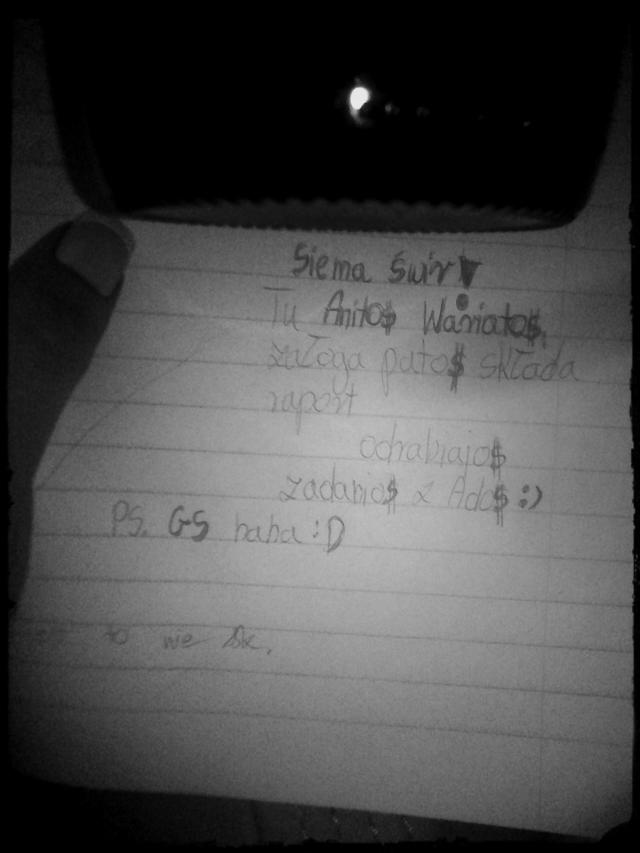 Siema Świr!
Tu Anito$ Wariato$,
załoga pato$ składa
raport
odrabiajo$
zadanio$ z Ado$ :)
PS. GS haha :D
to we